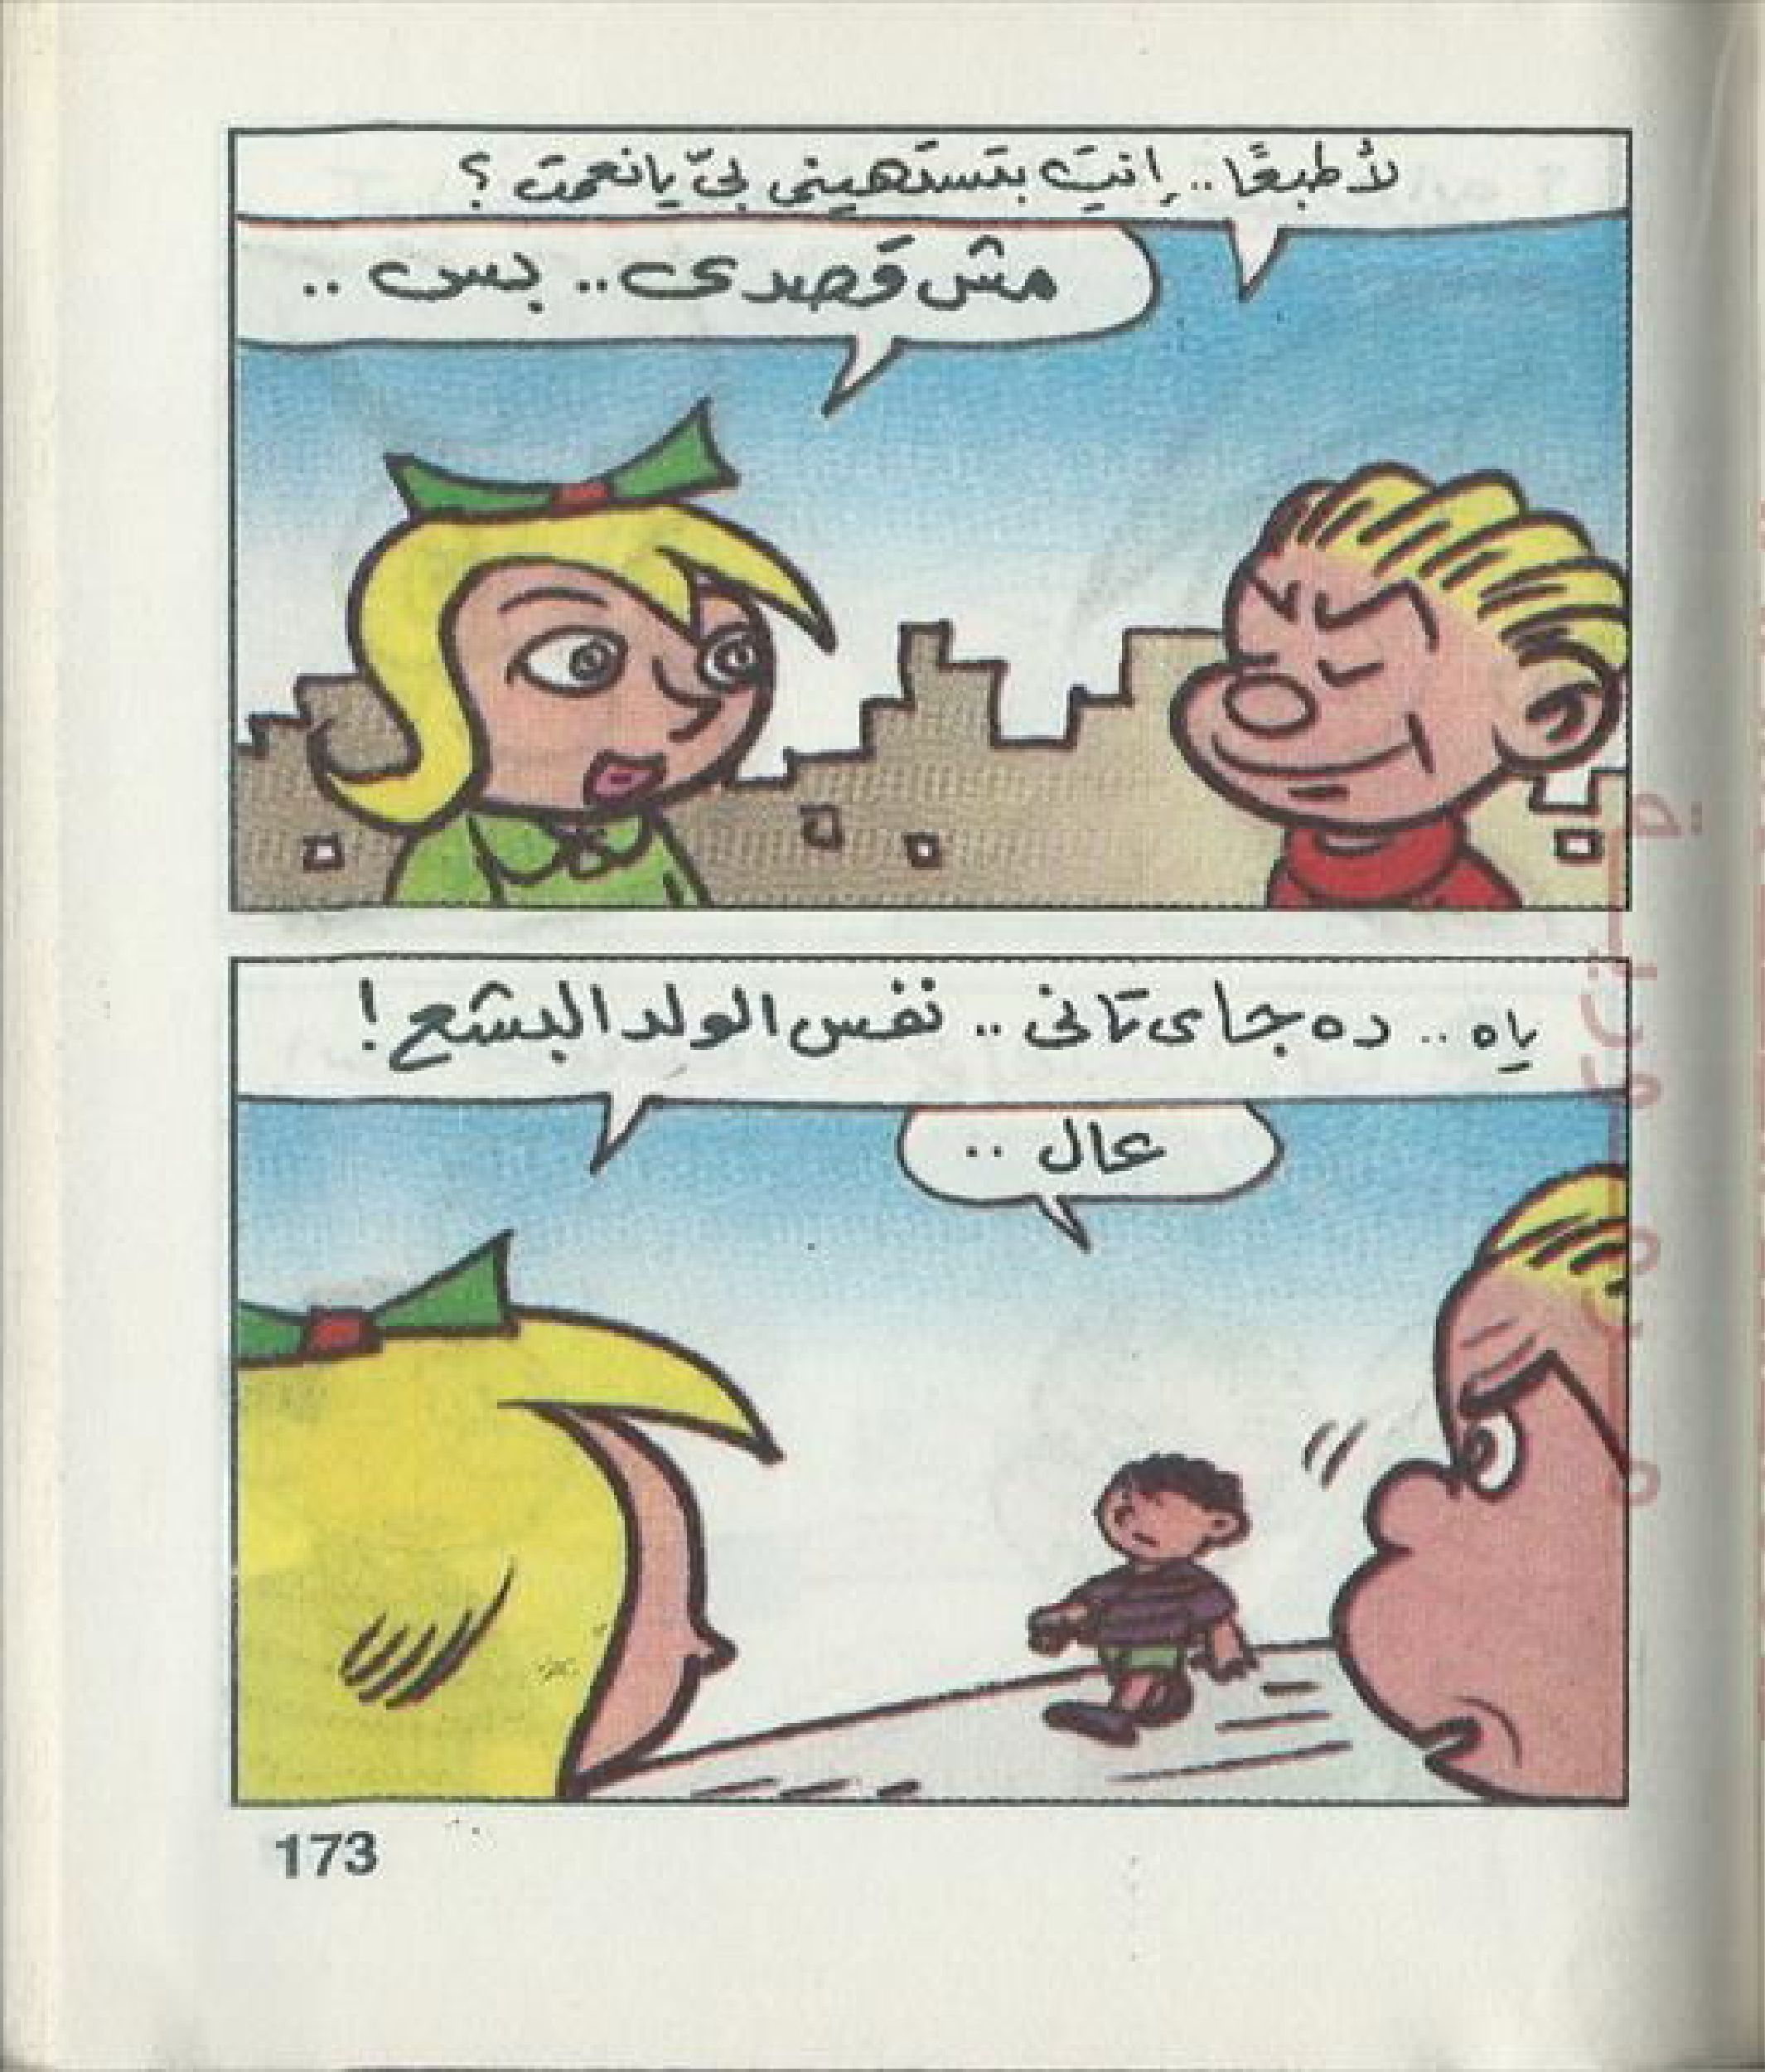 لأ طبعًا.. إنتِ بتستهيني بىّ يا نعمت ؟
مش قصدى.. بس ..
ياه .. ده جاى تانى .. نفس الولد البشع !
عال ..
173